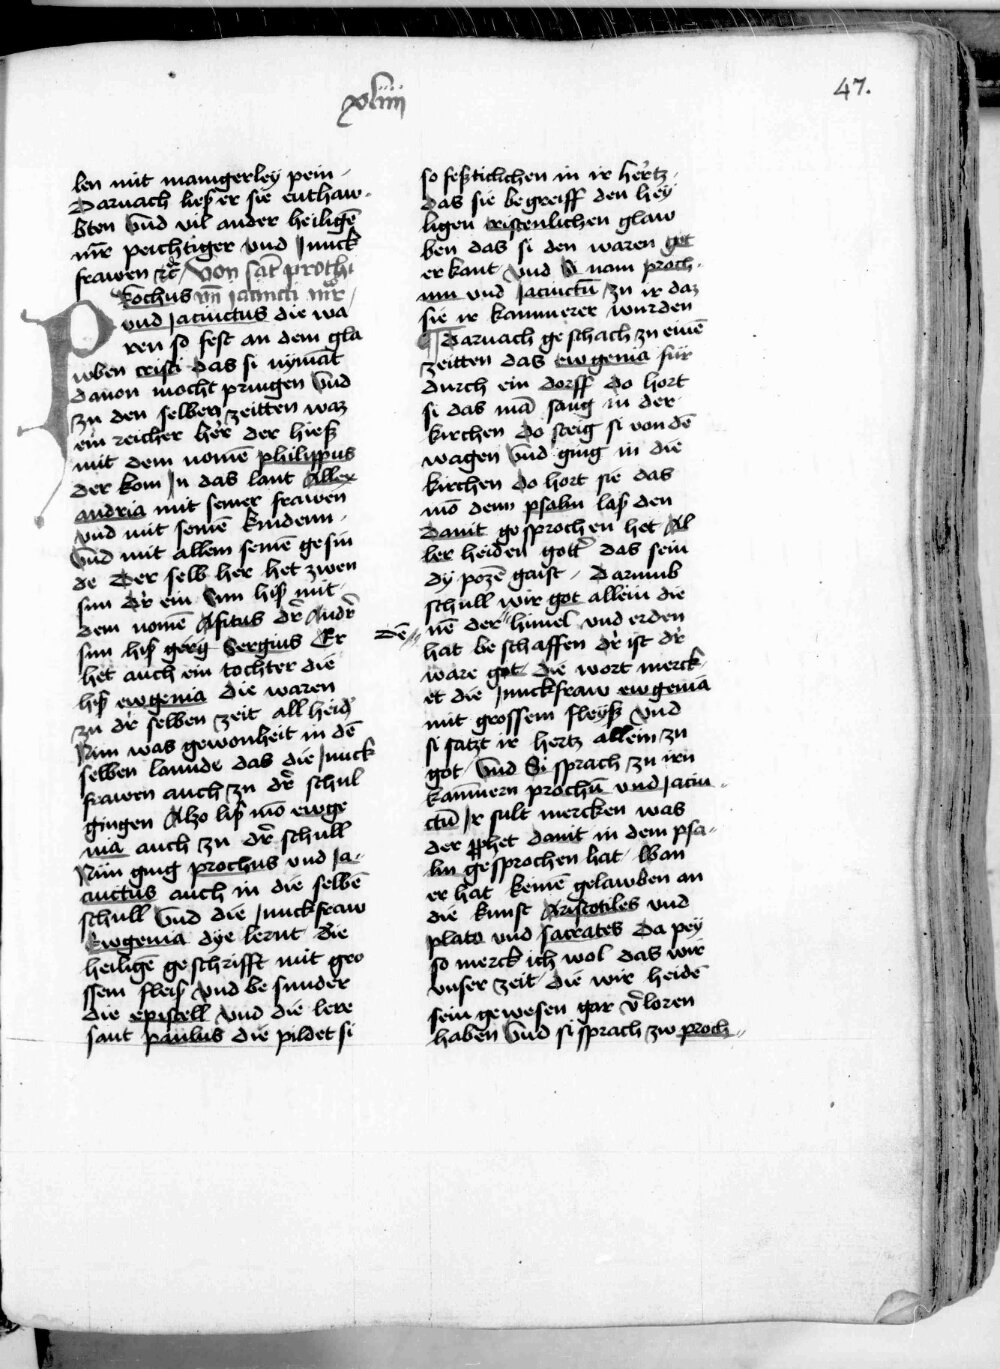 xliiij
47.
ben mit manigerley pein /
Darnach liesz er sie enthaw¬
bten Vnd vil ander heiligē
mr̄ peichtiger vnd Junck
frawen ꝛc̄ / Von sāt prothi
Rochus vn̄ jacincti mr̄
Pvnd Jacinctus die wa
ren so fest an dem gla
wben cristi das si nymāt
dauon mocht pringen Vnd
zu den selben zeitten waz
ein reicher her̄ der hiesz
mit dem nomē philippus
der kom Jn das lant Allex
andria mit seiner frawen
vnd mit seinē kindenn ·
Vnd mit allem seinē gesin
de Der selb her het zwen
sun dr̄ ein sun hisz mit
dem nomē Afitus dr̄ Andr̄
sun hisz Sergius Er
het auch ein tochter die
hisz ewgenia die waren
zu dr̄ selben zeit all heid̄
Nun was gewonheit in dē
selben lannde das die Junck
frawen auch zu dr̄ schul
gingen Alzo lisz mō ewge
nia auch zu dr̄ schull
Nun ging prochus vnd Ja-
cinctus auch in die selbē
schull Vnd die Junckfraw
Ewgenia dye lernt die
heiligē geschrifft mit gro
ssem fleisz Vnd besunder
die epistell Vnd die lere
sant paulus die pildet si
so festiclichen in ir hertz ·
das sie begreiff den hey
ligen cristenlichen glaw
ben das si den waren got
erkant Vnd Si nam proch·
um vnd Jacinctū zu ir daz
sie ir kammerer wurden
Darnach geschach zu einē
zeitten das ewgenia für
durch ein dorff do hort
si das mā sang in der
kirchen Do steig si von dē
wagen Vnd ging in die
kirchen do hort sie das
mō denn psalm lasz den
Dauit gesprochen het Al
ler heiden gott̄ das sein
dy pozē gaist / Darumb
schull wir got allein die
dē// nē der "himel vnd erden
hat beschaffen dr̄ ist dr̄
ware got die wort merck
et die Junckfraw ewgenia
mit grossem fleysz Vnd
si satzt ir hertz allein zu
got / Vnd Si sprach zu iren
kammern prochū vnd Jacin-
ctū Jr sult mercken was
der ꝓphet dauit in dem psa-
lm gesprochen hat / Wan
er hat keinē gelawben an
die kunst Aristotiles vnd
plato vnd sacrates Da pey
so merck ich wol das wir
vnser zeit / die wir heidē
sein gewesen gar v̄loren
haben Vnd si sprach zw proch-